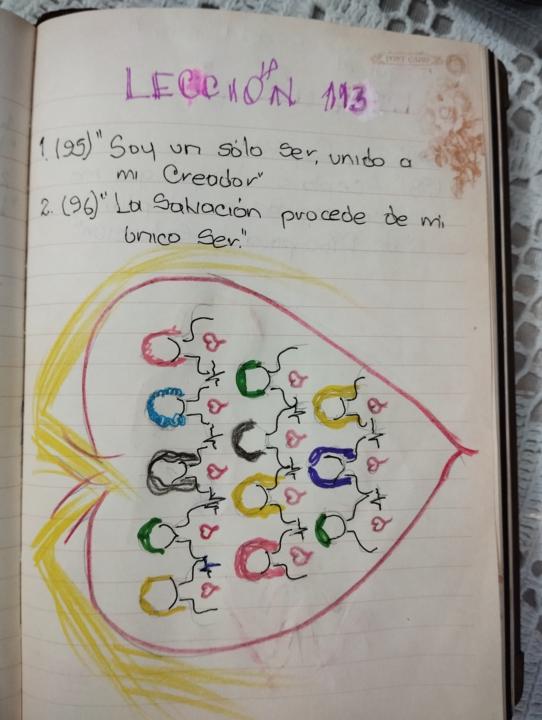 POST CARD
LECCIÓN 113
1. (95) "Soy un sólo ser, unido a
mi Creador"
2. (96) "La Salvación procede de mi
único Ser."